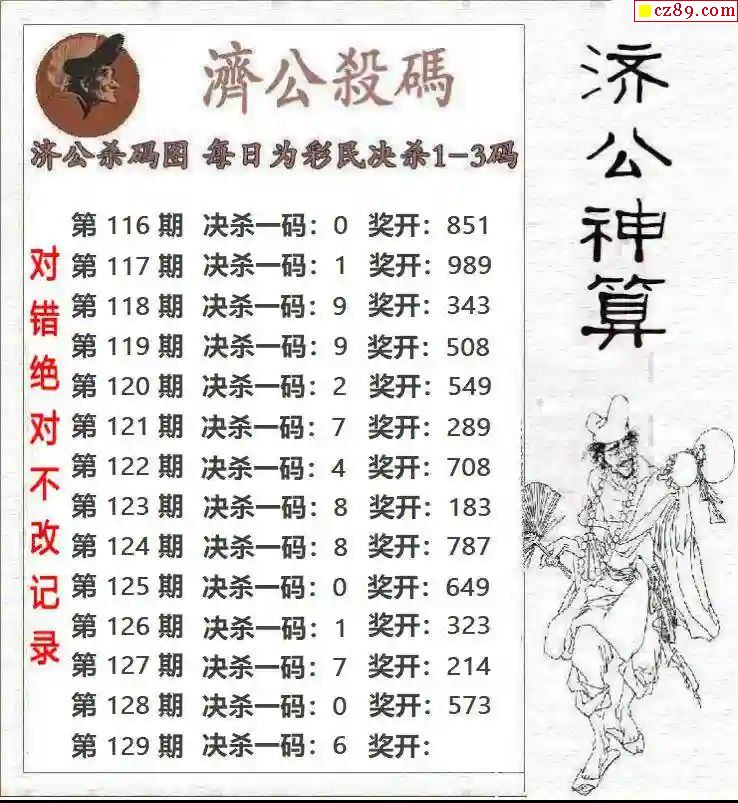 cz89.com
濟公殺碼
济公杀码图 每日为彩民决杀1-3码
第 116 期 决杀一码：0 奖开：851
第 117 期 决杀一码：1 奖开：989
第 118 期 决杀一码：9 奖开：343
第 119 期 决杀一码：9 奖开：508
第 120 期 决杀一码：2 奖开：549
第 121 期 决杀一码：7 奖开：289
第 122 期 决杀一码：4 奖开：708
第 123 期 决杀一码：8 奖开：183
第 124 期 决杀一码：8 奖开：787
第 125 期 决杀一码：0 奖开：649
第 126 期 决杀一码：1 奖开：323
第 127 期 决杀一码：7 奖开：214
第 128 期 决杀一码：0 奖开：573
第 129 期 决杀一码：6 奖开：
对错绝对不改记录
济公神算